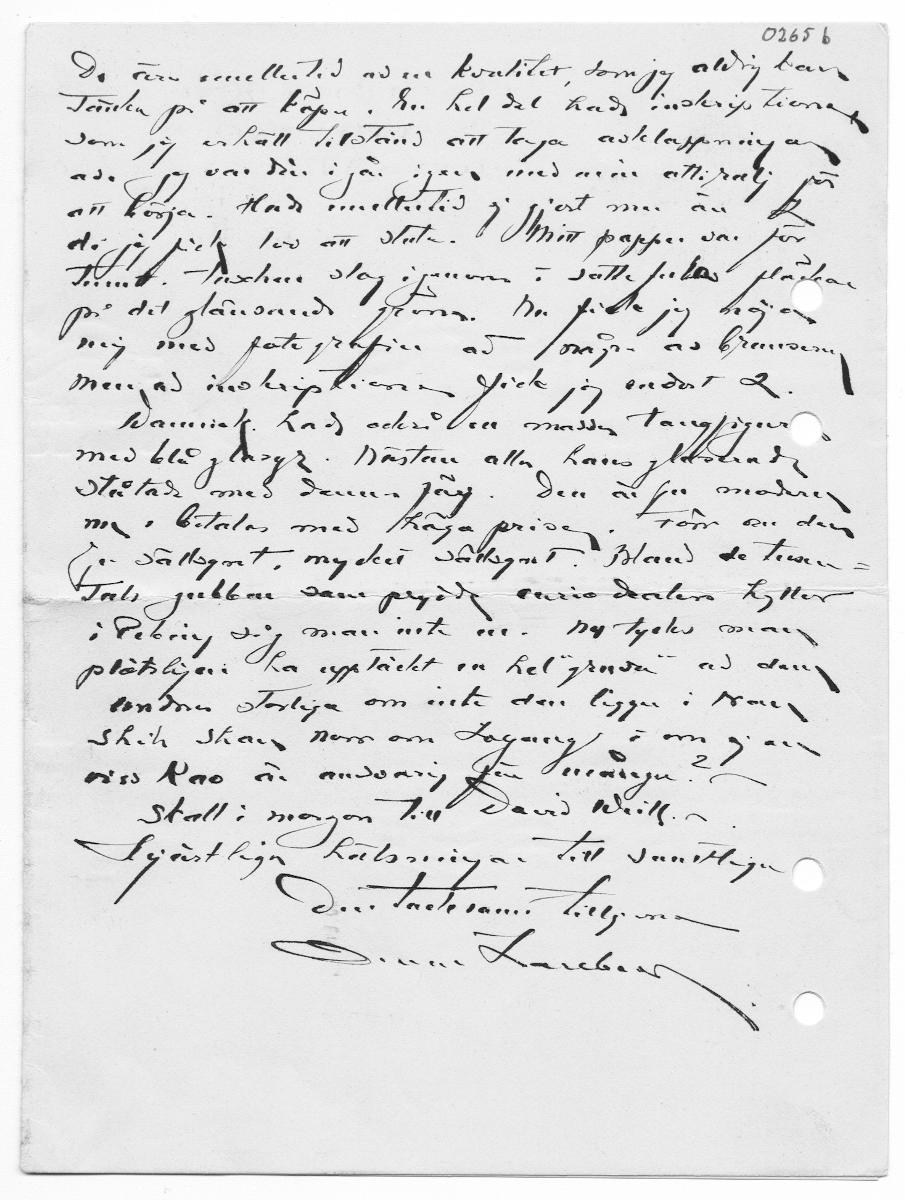 0265 b
De äro emellertid av en kvalitet, som jag aldrig kan
tänka på att köpa. En hel del hade inskriptioner
som jag erhållit tillstånd att taga avklappningar
av. Jag var där i går igen med min attiralj för
att börja. Hade emellertid ej gjort mer än 2
då jag fick lov att sluta. Mitt papper var för
tunt. Tuschen slog igenom å satte fula fläckar
på det glänsande gröna. Nu fick jag nöja
mig med fotografier av några av bronserna
men av inskriptionerna fick jag endast 2.
Wannieck hade också en massa Tangfigurer
med blå glasyr. Nästan alla hans glaserade
ståtade med denna färg. Den är ju modern
nu å betalas med höga priser. Förr var den
ju sällsynt, mycket sällsynt. Bland de tusen=
tals gubbar som prydde curio dealers hyllor
i Peking såg man inte en. Nu tycks man
plötsligen ha upptäckt en hel "gruva" av den
undrar storliga om inte den ligger i Nan
Shih Shan norr om Loyang å om ej en
viss Kao är ansvarig för många?
Skall i morgon till David Weill.
Hjärtliga hälsningar till samtliga
Din tacksamt tillgivne
Orvar Karlbeck